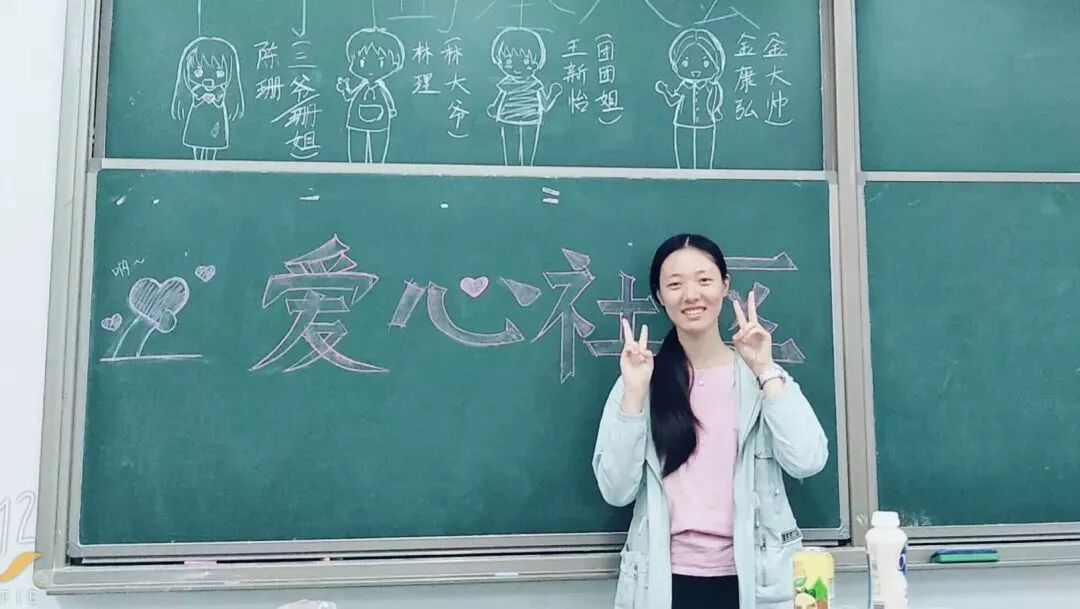 陈珊
(三爷珊姐)
林理
(林大爷)
王新怡
(团团姐)
金康弘
(金大帅)
爱心社区
12
FIE